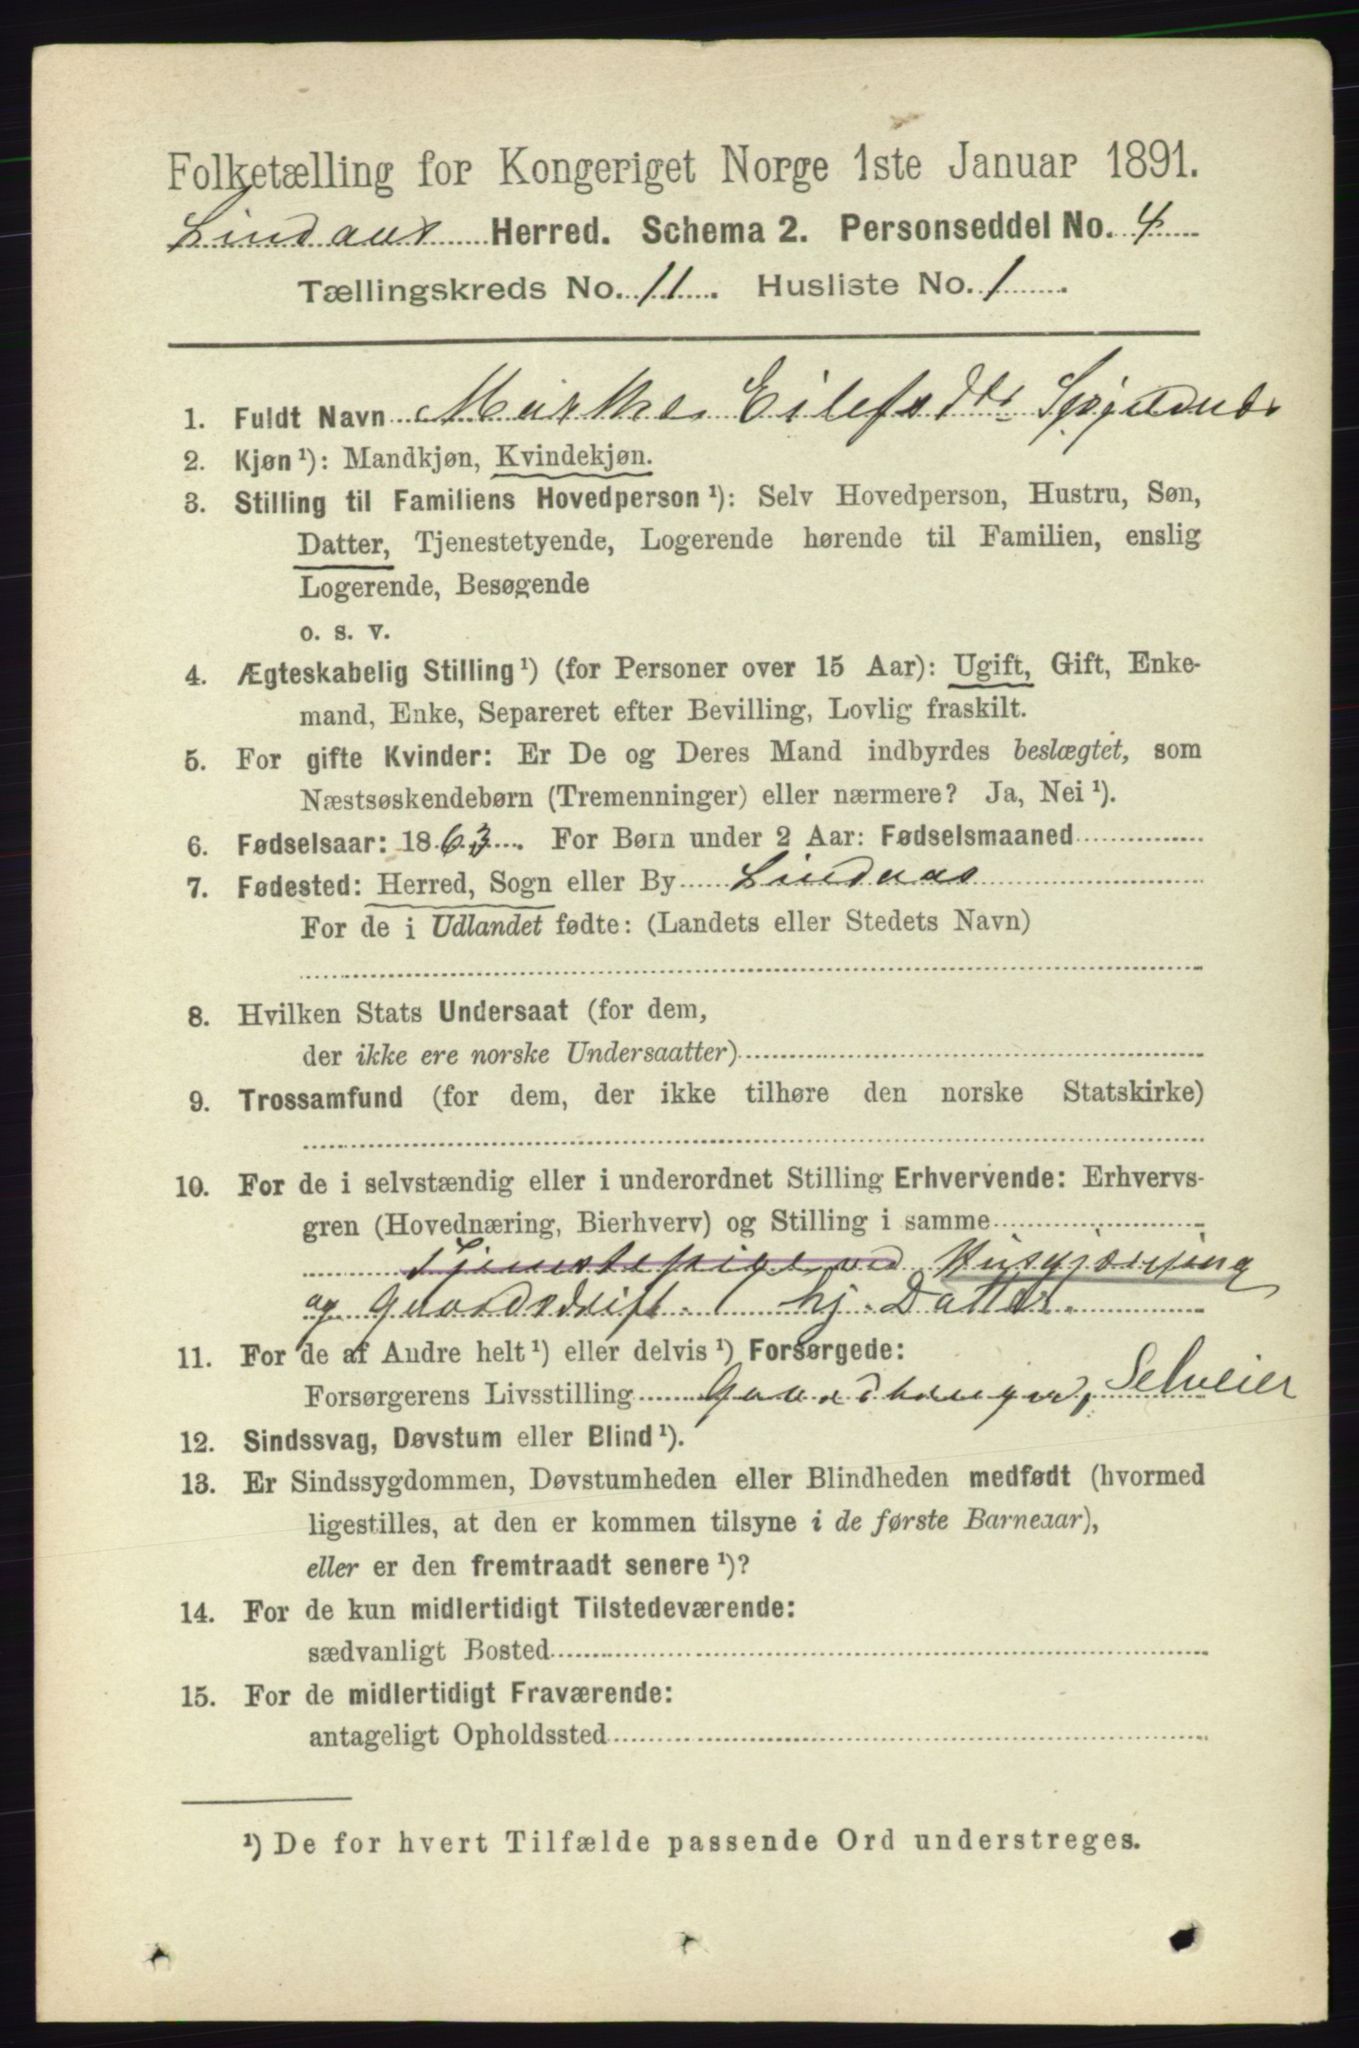 Folketælling for Kongeriget Norge 1ste Januar 1891.
Lindaas Herred. Schema 2. Personseddel No. 4
Tællingskreds No. 11. Husliste No. 1.
1. Fuldt Navn Marthe Eilefsdtr
2. Kjøn¹): Mandkjøn, Kvindekjøn.
3. Stilling til Familiens Hovedperson¹): Selv Hovedperson, Hustru, Søn,
Datter, Tjenestetyende, Logerende hørende til Familien, enslig
Logerende, Besøgende
o. s. v.
4. Ægteskabelig Stilling¹) (for Personer over 15 Aar): Ugift, Gift, Enke-
mand, Enke, Separeret efter Bevilling, Lovlig fraskilt.
5. For gifte Kvinder: Er De og Deres Mand indbyrdes beslægtet, som
Næstsøskendebørn (Tremenninger) eller nærmere? Ja, Nei¹).
6. Fødselsaar: 1863. For Børn under 2 Aar: Fødselsmaaned
7. Fødested: Herred, Sogn eller By Lindaas
For de i Udlandet fødte: (Landets eller Stedets Navn)
8. Hvilken Stats Undersaat (for dem,
der ikke ere norske Undersaatter)
9. Trossamfund (for dem, der ikke tilhøre den norske Statskirke)
10. For de i selvstændig eller i underordnet Stilling Erhvervende: Erhvervs-
gren (Hovednæring, Bierhverv) og Stilling i samme
Tjenestepige ved Husgjærning
og Gaardsdrift. hj. Datter.
11. For de af Andre helt¹) eller delvis¹) Forsørgede:
Forsørgerens Livsstilling Gaardbruger, Selveier
12. Sindssvag, Døvstum eller Blind¹).
13. Er Sindssygdommen, Døvstumheden eller Blindheden medfødt (hvormed
ligestilles, at den er kommen tilsyne i de første Barneaar),
eller er den fremtraadt senere¹)?
14. For de kun midlertidigt Tilstedeværende:
sædvanligt Bosted
15. For de midlertidigt Fraværende:
antageligt Opholdssted
¹) De for hvert Tilfælde passende Ord understreges.